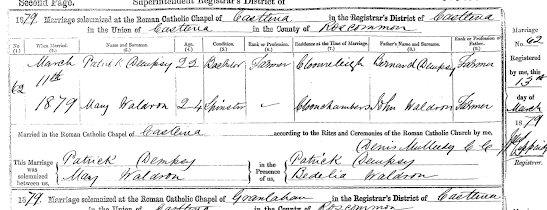 Second Page. Superintendent Registrar's District of
1879. Marriage solemnized at the Roman Catholic Chapel of Castlerea in the Registrar's District of Castlerea
in the Union of Castlerea in the County of Roscommon
No. When Married. Name and Surname. Age. Condition. Rank or Profession. Residence at the Time of Marriage. Father's Name and Surname. Rank or Profession of Father.
62 March 11th 1879 Patrick Dempsy 22 Bachelor Farmer Bernard Dempsy Farmer
Mary Waldron 24 Spinster Cloonchambers John Waldron Farmer
Married in the Roman Catholic Chapel of Castlerea according to the Rites and Ceremonies of the Roman Catholic Church by me,
Denis Mulleady C C
This Marriage was solemnized between us, Patrick Dempsy Mary Waldron in the Presence of us, Patrick Dempsy Bedelia Waldron
No. 62
Registered by me, this 13th day of March 1879
Registrar.
1879. Marriage solemnized at the Roman Catholic Chapel of Granlahan in the Registrar's District of Castlerea